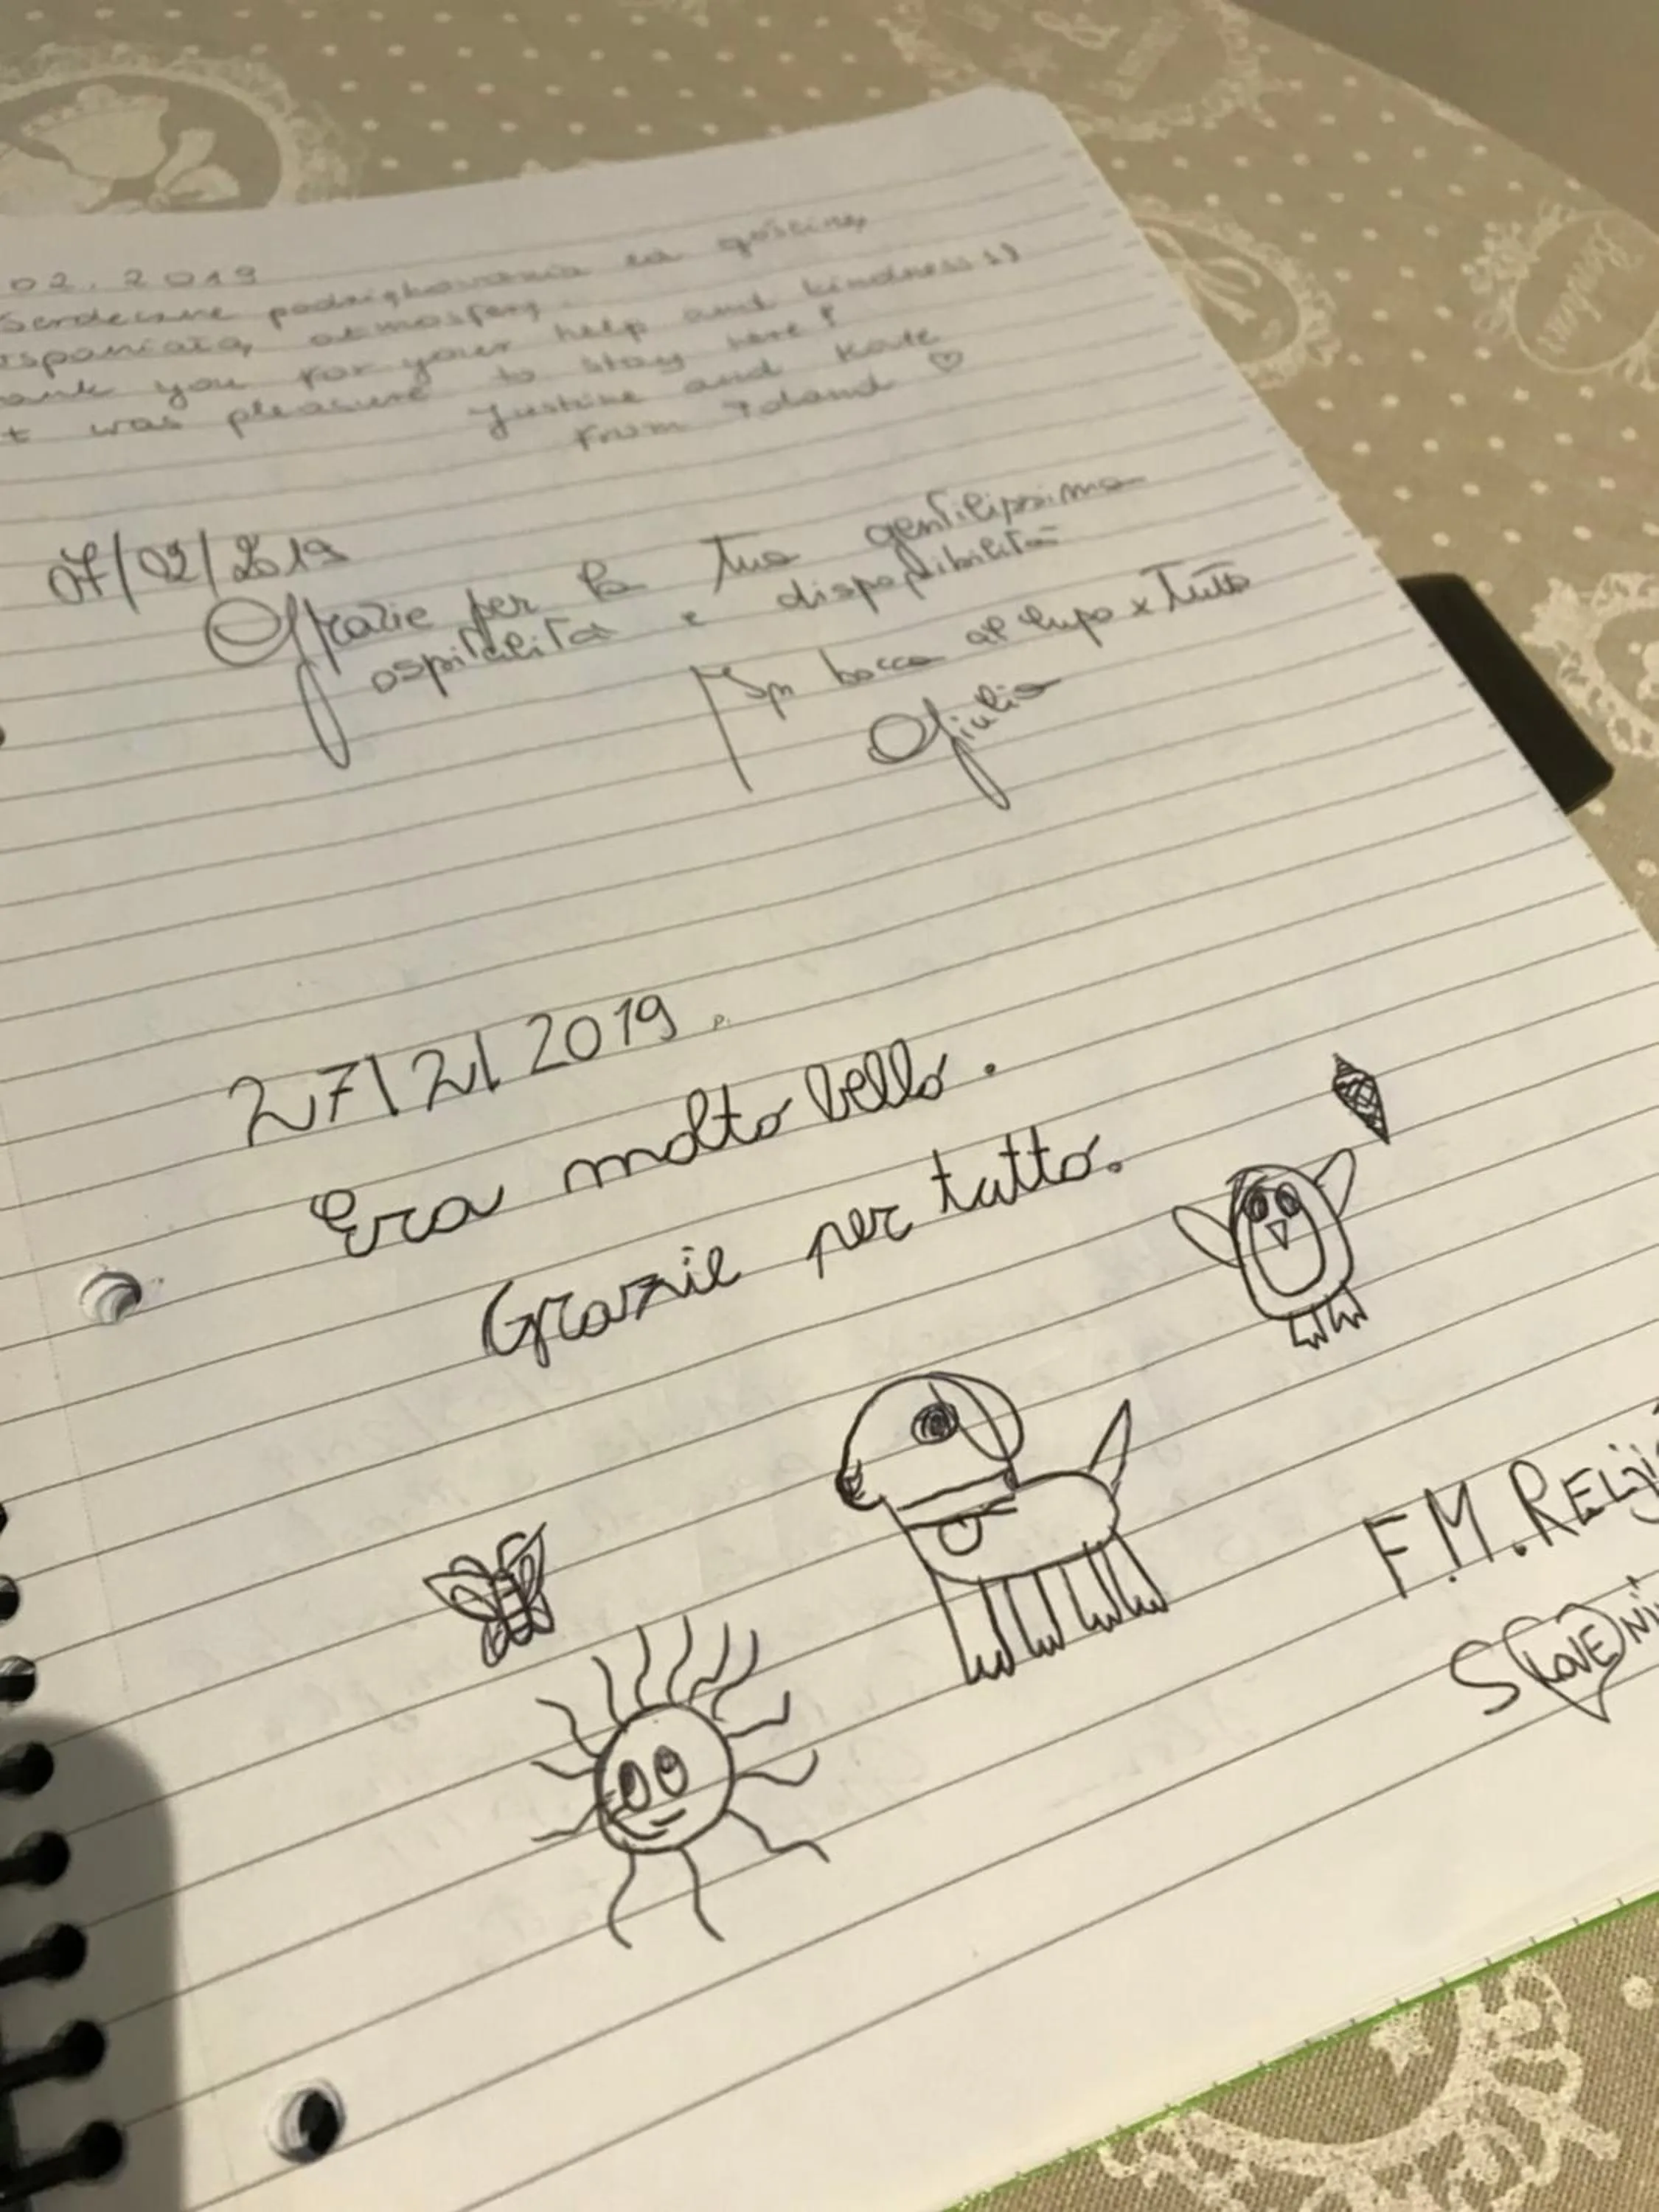 02.2019
Serdeczne podziękowania za gościnę,
wspaniałą atmosferę.
ank you for your help and kindness :)
t was pleasure to stay here!
Justine and Kate
from Poland ♡
07/02/2019
Grazie per la tua gentilissima
ospitalità e disponibilità
In bocca al lupo x Tutto
Giulia
27/2/2019.
Era molto bello.
Grazie per tutto.
F.M.
SLOVENI